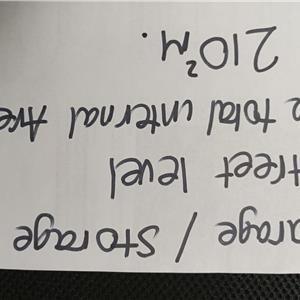 arage / Storage
treet level
total internal Are
210²M.